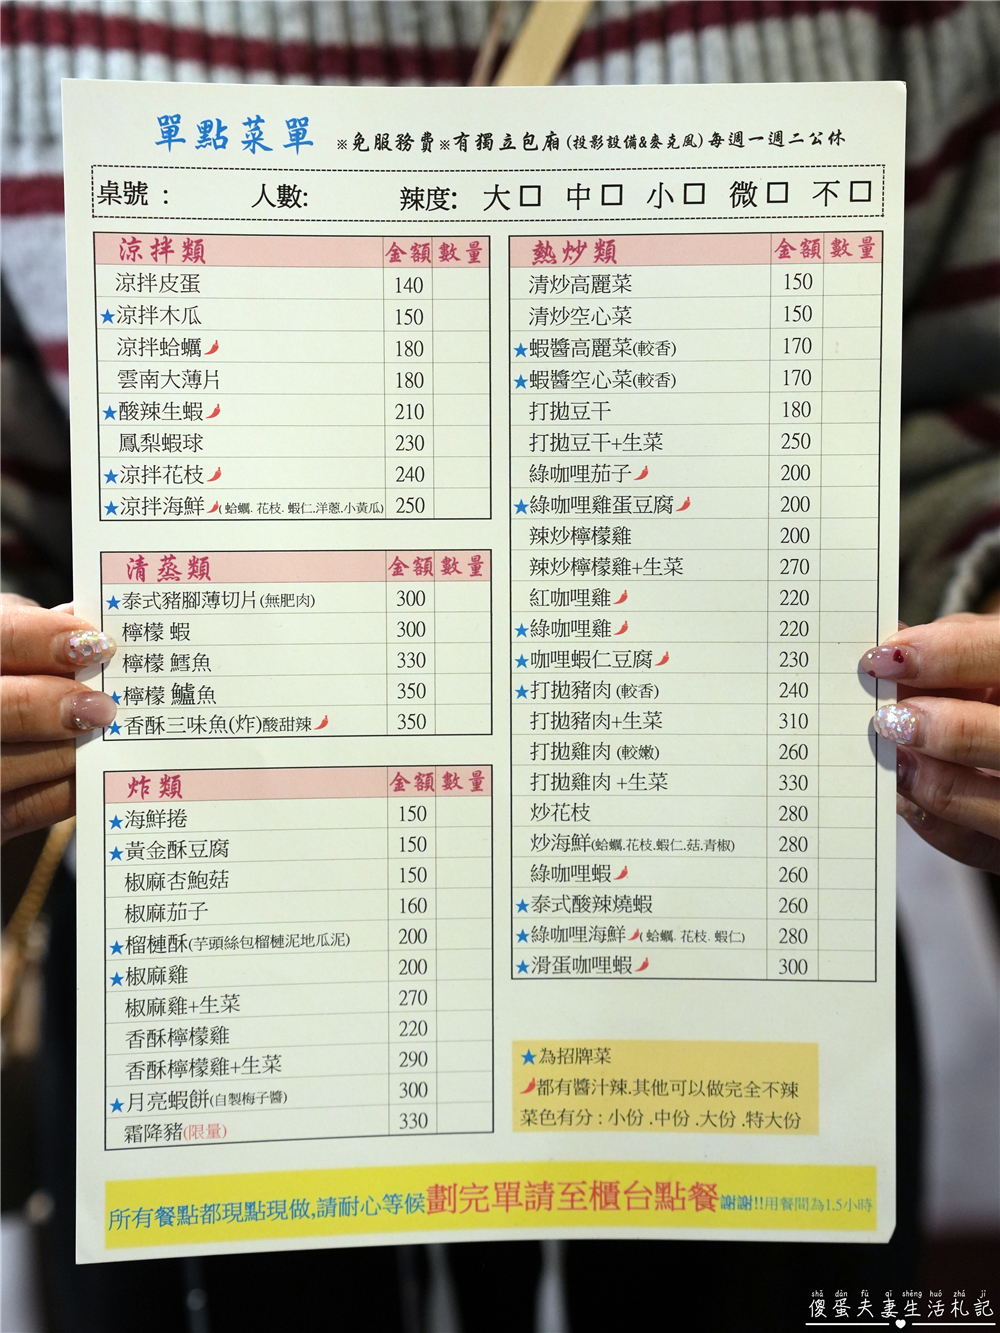 單點菜單 ※免服務費※有獨立包廂(投影設備&麥克風)每週一週二公休
桌號 : 人數: 辣度: 大□ 中□ 小□ 微□ 不□
涼拌類 金額 數量
涼拌皮蛋 140
★涼拌木瓜 150
涼拌蛤蠣 180
雲南大薄片 180
★酸辣生蝦 210
鳳梨蝦球 230
★涼拌花枝 240
★涼拌海鮮(蛤蠣. 花枝. 蝦仁.洋蔥.小黃瓜) 250
清蒸類 金額 數量
★泰式豬腳薄切片(無肥肉) 300
檸檬 蝦 300
檸檬 鱈魚 330
★檸檬 鱸魚 350
★香酥三味魚(炸)酸甜辣 350
炸類 金額 數量
★海鮮捲 150
★黃金酥豆腐 150
椒麻杏鮑菇 150
椒麻茄子 160
★榴槤酥(芋頭絲包榴槤泥地瓜泥) 200
★椒麻雞 200
椒麻雞+生菜 270
香酥檸檬雞 220
香酥檸檬雞+生菜 290
★月亮蝦餅(自製梅子醬) 300
霜降豬(限量) 330
熱炒類 金額 數量
清炒高麗菜 150
清炒空心菜 150
★蝦醬高麗菜(較香) 170
★蝦醬空心菜(較香) 170
打拋豆干 180
打拋豆干+生菜 250
綠咖哩茄子 200
★綠咖哩雞蛋豆腐 200
辣炒檸檬雞 200
辣炒檸檬雞+生菜 270
紅咖哩雞 220
★綠咖哩雞 220
★咖哩蝦仁豆腐 230
★打拋豬肉 (較香) 240
打拋豬肉+生菜 310
打拋雞肉 (較嫩) 260
打拋雞肉 +生菜 330
炒花枝 280
炒海鮮(蛤蠣.花枝.蝦仁.菇.青椒) 280
綠咖哩蝦 260
★泰式酸辣燒蝦 260
★綠咖哩海鮮(蛤蠣. 花枝. 蝦仁) 280
★滑蛋咖哩蝦 300
★為招牌菜
都有醬汁辣.其他可以做完全不辣
菜色有分 : 小份 .中份 .大份 .特大份
所有餐點都現點現做,請耐心等候劃完單請至櫃台點餐謝謝!!用餐間為1.5小時
shǎ dàn fū qī shēng huó zhá jì
傻蛋夫妻生活札記